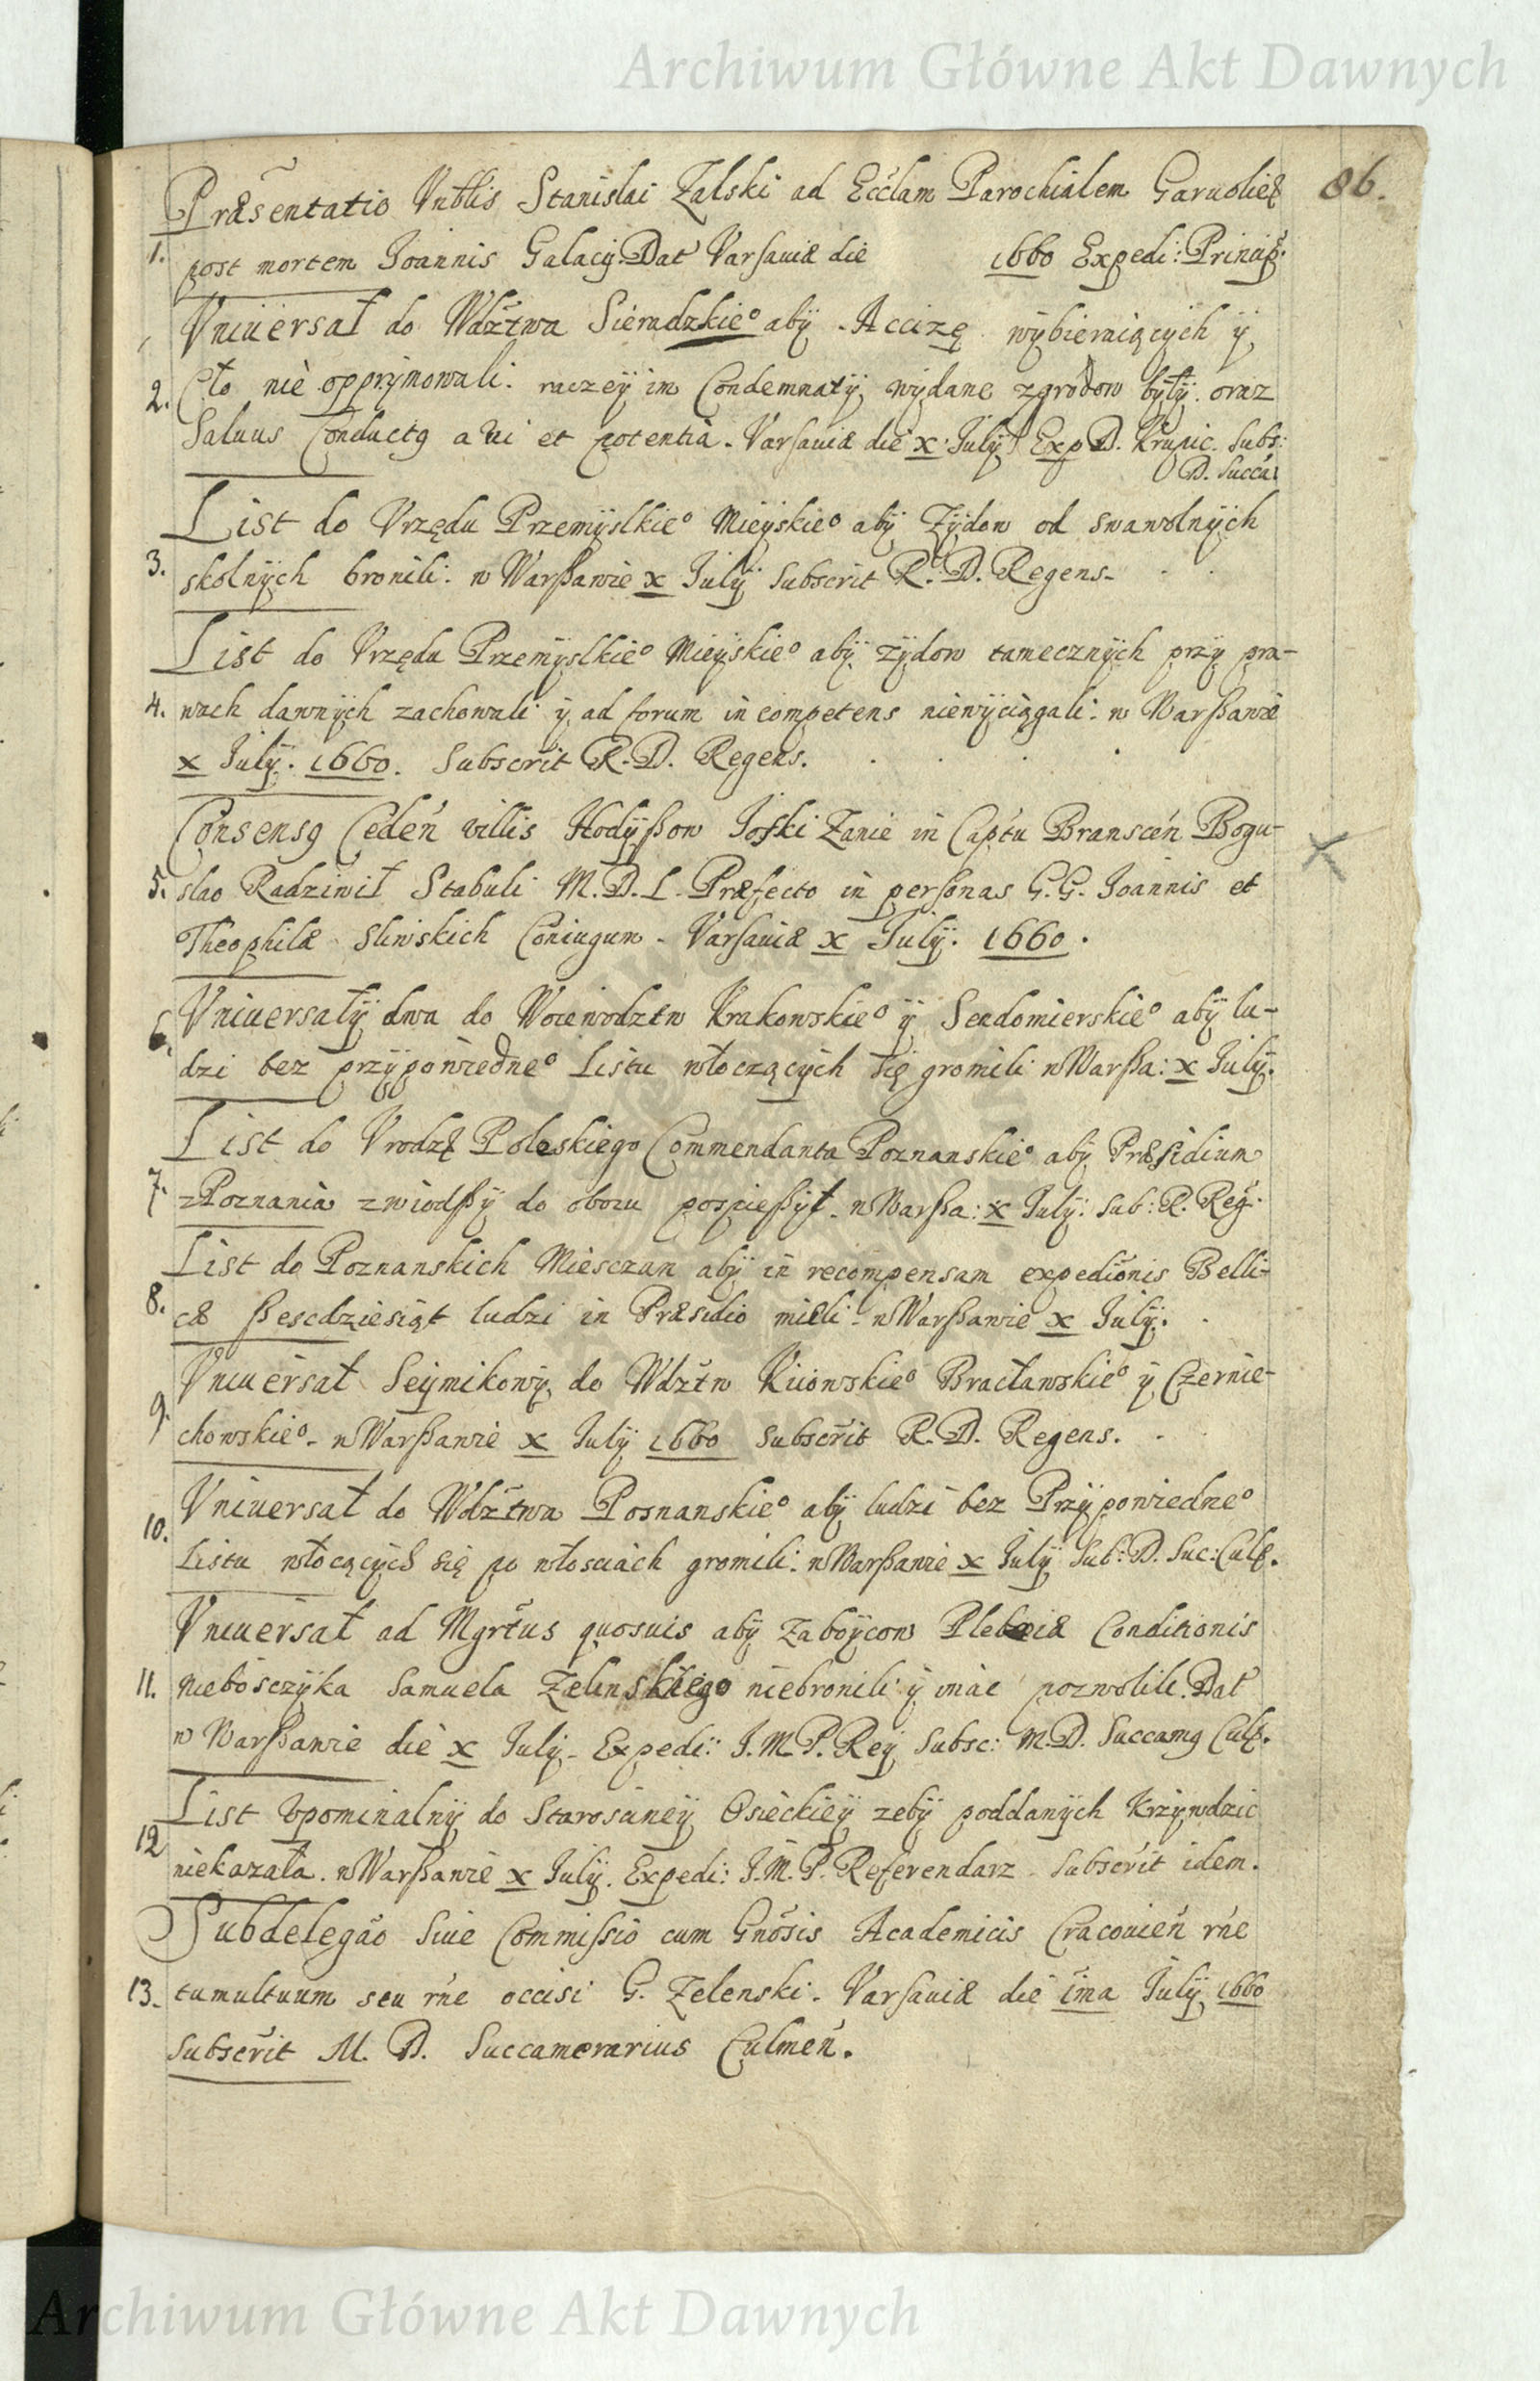 Archiwum Główne Akt Dawnych
86.
Præsentatio Vnblis Stanislai Zalski ad Eccłam Parochialem Garuoliæ
1. post mortem Joannis Galacij. Dat Varsauiæ die 1660 Expedi: Princip:
Vniuersał do Wdztwa Sieradzkie° aby Accizę wybieraiących y
2. Cło nie opprymowali. raczey im Condemnaty wydane zgrodow były. oraz
Saluus Conductq a vi et potentia. Varsauiæ die x July Exp D. Krupic. Subs:
D. Succa:
List do Vrzędu Przemyslkie° Mieyskie° aby Zydow od swawolnych
3. skolnych bronili. w Warßawie x July Subscrit R. D. Regens.
List do Vrzędu Przemyslkie° Mieyskie° aby zydow tamecznych przy pra-
4. wach dawnych zachowali y ad forum incompetens niewyciągali. w Warßawie
x July. 1660. Subscrit R. D. Regens.
Consensq Ceden villis Hodyßow Joski Zanie in Captu Branscen Bogu-
5. slao Radziwił Stabuli M. D. L. Præfecto in personas G. G. Joannis et
Theophilæ Sliwskich Coniugum. Varsauiæ x July. 1660.
6. Vniuersały dwa do Woiewodztw Krakowskie° y Sendomierskie° aby lu-
dzi bez przypowiedne° Listu włoczących się gromili w Warßa: x July.
List do Vrodzę Poleskiego Commendanta Poznanskie° aby Præsidium
7. z Poznania zwiodßy do obozu pospießył. w Warßa: x July. Sub: R. Reg.
List do Poznanskich Miesczan aby in recompensam expedionis Belli-
8. cæ ßescdziesiąt ludzi in Præsidio mieli. w Warßawie x July.
Vniuersał Seymikowy do Wdztw Kiiowskie° Bracławskie° y Czernie-
9. chowskie°. w Warßawie x July 1660 Subscrit R. D. Regens.
Vniuersał do Wdztwa Posnanskie° aby ludzi bez Przypowiedne°
10. Listu włocących się po włosciach gromili. w Warßawie x July Sub: D. Suc: Culm.
Vniuersał ad Mgrtus quosuis aby zaboycow Plebeiæ Conditionis
11. nieboszczyka Samuela Zelenskiego niebronili y imac pozwolili. Dat
w Warßawie die x July. Expedi: J. M. P. Rey Subsc: M. D. Succamq Culm.
List vpominalny do Starosciney Osieckiey zeby poddanych Krzywdzic
12 niekazała. w Warßawie x July. Expedi: J. M. P. Referendarz Subscrit idem.
Subdelegao Siue Commissio cum Gnosis Academicis Cracouien rne
13. tumultuum seu rne occisi G. Zelenski. Varsauiæ die ima July 1660
Subscrit M. D. Succamerarius Culmen.
Archiwum Główne Akt Dawnych